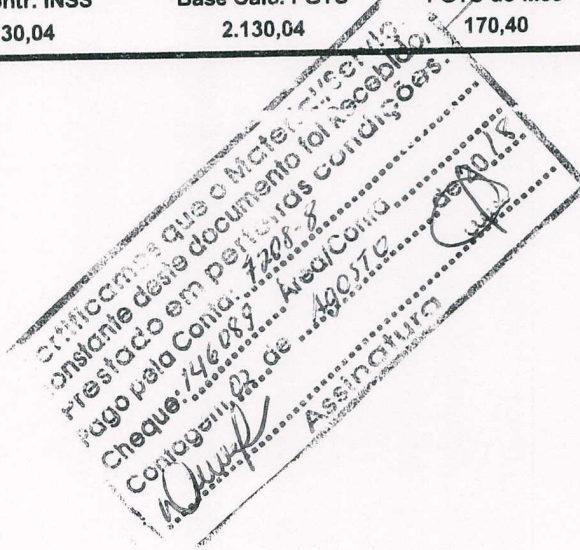 ontr. INSS Base Calc. FGTS FGTS do Mês
30,04 2.130,04 170,40
ertificamos que o Material/Serviço
onstante deste documento foi Recebido/
Prestado em perfeitas condições.
Pago pela Conta: 7208-8
Cheque: 146089 Área/Conta
Contagem, 02 de AGOSTO de 2018
Assinatura